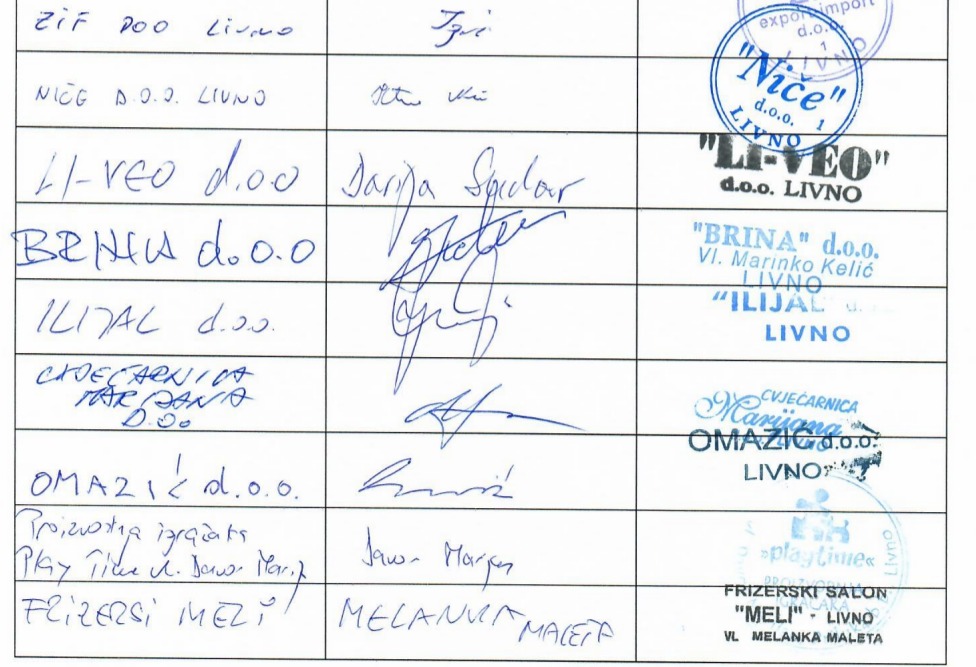 ZIF DOO LIVNO
export import
d.o.o.
1
LIVNO
NIČE D.O.O. LIVNO
"Niče"
d.o.o. 1
LIVNO
LI-VEO d.o.o
Darija
"LI-VEO"
d.o.o. LIVNO
BRINA d.o.o
"BRINA" d.o.o.
Vl. Marinko Kelić
LIVNO
ILIJAL d.o.o.
"ILIJAL" d.
LIVNO
CVJEĆARNICA
MARIJANA
D.OO
CVJEĆARNICA
Marijana
OMAZIĆ d.o.o.
OMAZIĆ d.o.o.
LIVNO
Proizvodnja igračaka
Play Time vl. Davor
Davor
»playtime«
PROIZVODNJA
IGRAČAKA
Livno
FRIZERSKI MELI
MELANKA MALETA
FRIZERSKI SALON
"MELI" - LIVNO
VL. MELANKA MALETA